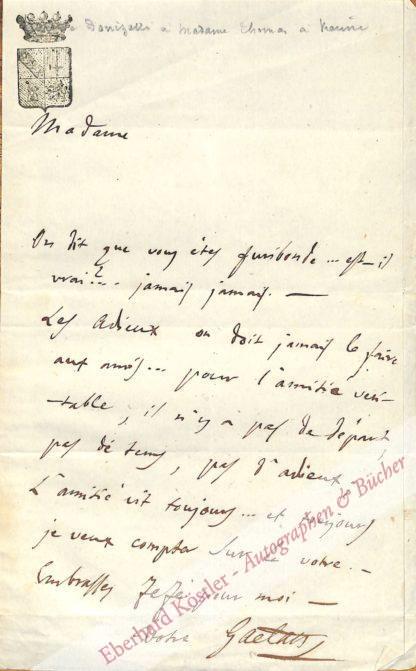 Donizetti à Madame Thomas à
Madame
On dit que vous êtes furibonde ... est-il
vrai?.. jamais jamais. —
Les Adieux on doit jamais le faire
aux amis... pour l'amitié veri-
-table, il n'y a pas de départ,
pas de tems, pas d'adieux.
L'amitié vit toujours... et toujours
je veux compter sur la votre. —
Embrasses Zezé pour moi —
Votre Gaetano
Eberhard Köstler - Autographen & Bücher